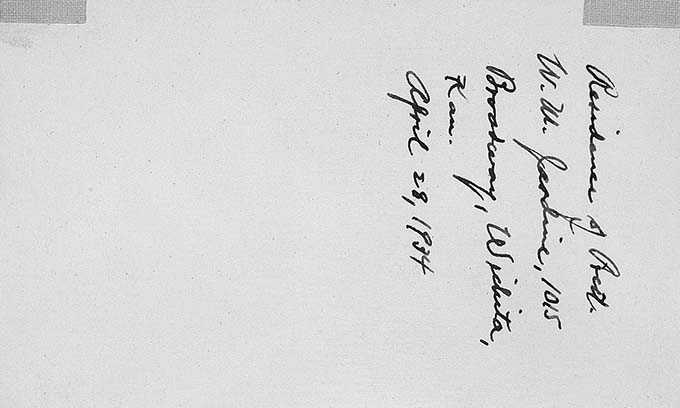 Residence of Pest.
W. M. Jardine, 1015
Broadway, Wichita,
Kan.
April 28, 1934